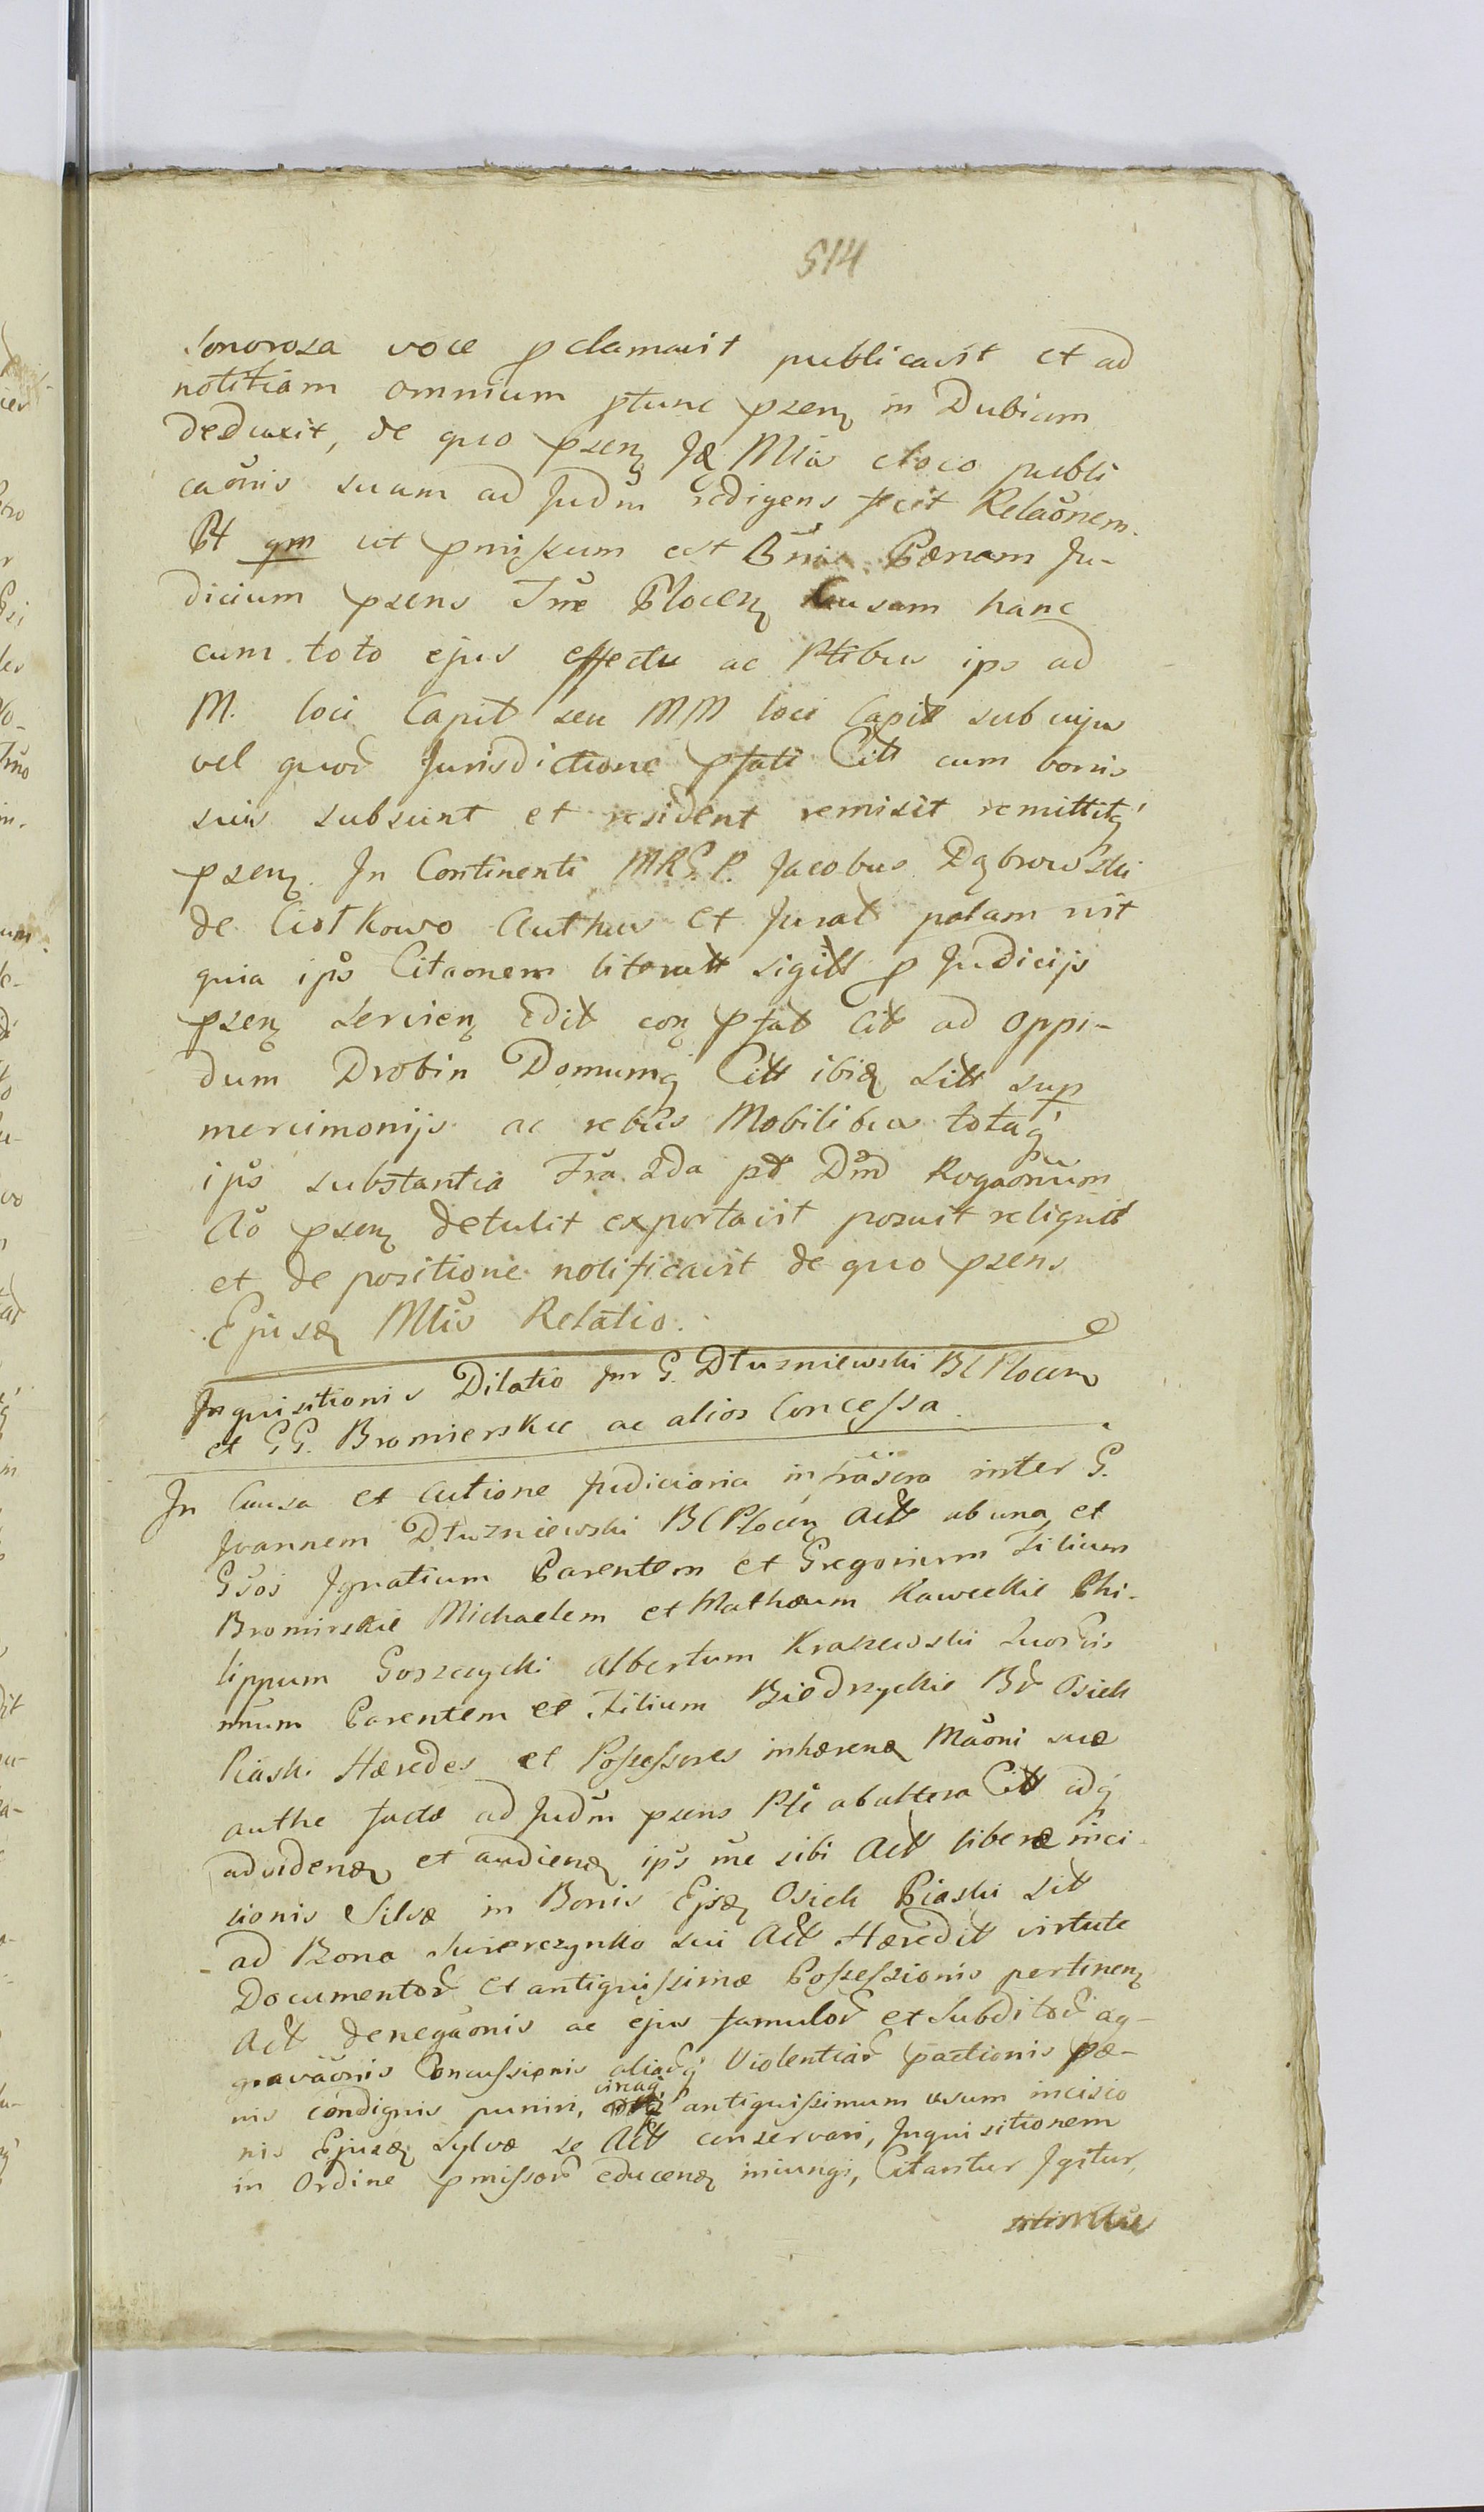 514
sonorosa voce pclamavit publicavit et ad
notitiam omnium ptunc psenz in Dubium
deduxit, de quo psenz Jd Mlia eloco publi
caonis suam ad Judm redigens fecit Relaonem.
Et qm ut pmissum est Bnis Pœnam Ju-
dicium psens Trre Plocenz Causam hanc
cum toto ejus effectu ac Ptibus ips ad
M. loci Capit seu MM loci Capit sub cujus
vel quod Jurisdictione pfati Citt cum bonis
suis subsunt et resident remisit remittitq
psenz. In Continenti MRG.P. Jacobus Dąbrowski
de Ciołkowo Authus et Jurat palam rit
quia ips Citaonem literatt sigitt p Judicijs
psenz servienz Edit conz pfat Cit ad oppi-
dum Drobin Domumq Citt ibid sitt sup
mercimonijs ac rebus Mobilibus totaq
ips substantia Fra 2da pt Dm Rogaonum
Ao psenz detulit exportavit posuit reliquit
et de positione notificavit de quo psens
Ejusd Mlis Relatio.
Inquisitionis Dilatio Inr G. Dłuzniewski BC Plocens
et GG. Bromierskie ac alios Concessa.
In Causa et Actione Judiciaria infrascra inter G.
Joannem Dłuzniewski BC Plocenz Act ab una, et
Gsos Ignatium Parentem et Gregorium Filium
Bromirskie Michaelem et Mathæum Kaweckie Phi-
lippum Goszczycki Albertum Kraszewski
mum Parentem et Filium Biedrzyckie Br Osiek
Piaski Hæredes et Possessores inhærend Maoni suæ
authe factæ ad Judm psens Pti ab altera Citt adq
advidend et audiend ips me sibi Act liberæ inci-
sionis Silvæ in Bonis Ejsd Osiek Piaski Sit
ad Bona Swierczynko sui Act Hæredit virtute
Documentor et antiquissimæ Possessionis pertinenz
Act denegaonis ac ejus famulor et Subditor ag-
gravaonis Concussionis aliarq Violentiar pactionis pæ-
nis condignis puniri, circaq antiquissimum usum incisio
nis Ejusd Sylvæ se Act conservari, Inquisitionem
in Ordine pmissor educend iniungi, Citantur Igitur